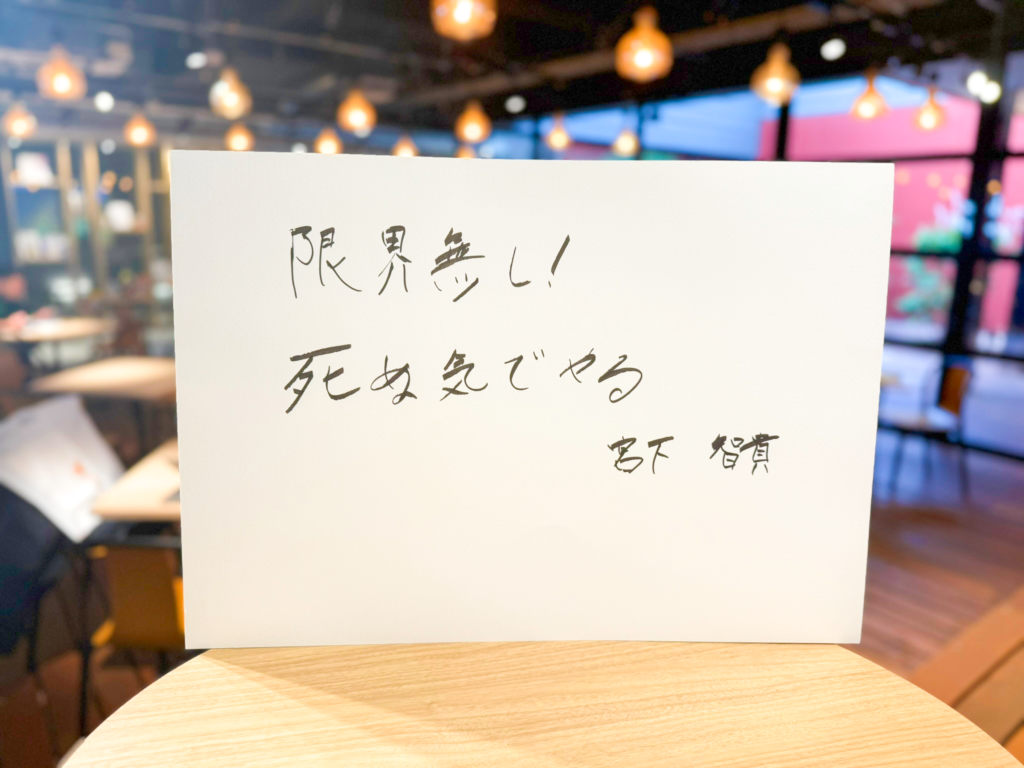 限界無し!
死ぬ気でやる
宮下 智貴